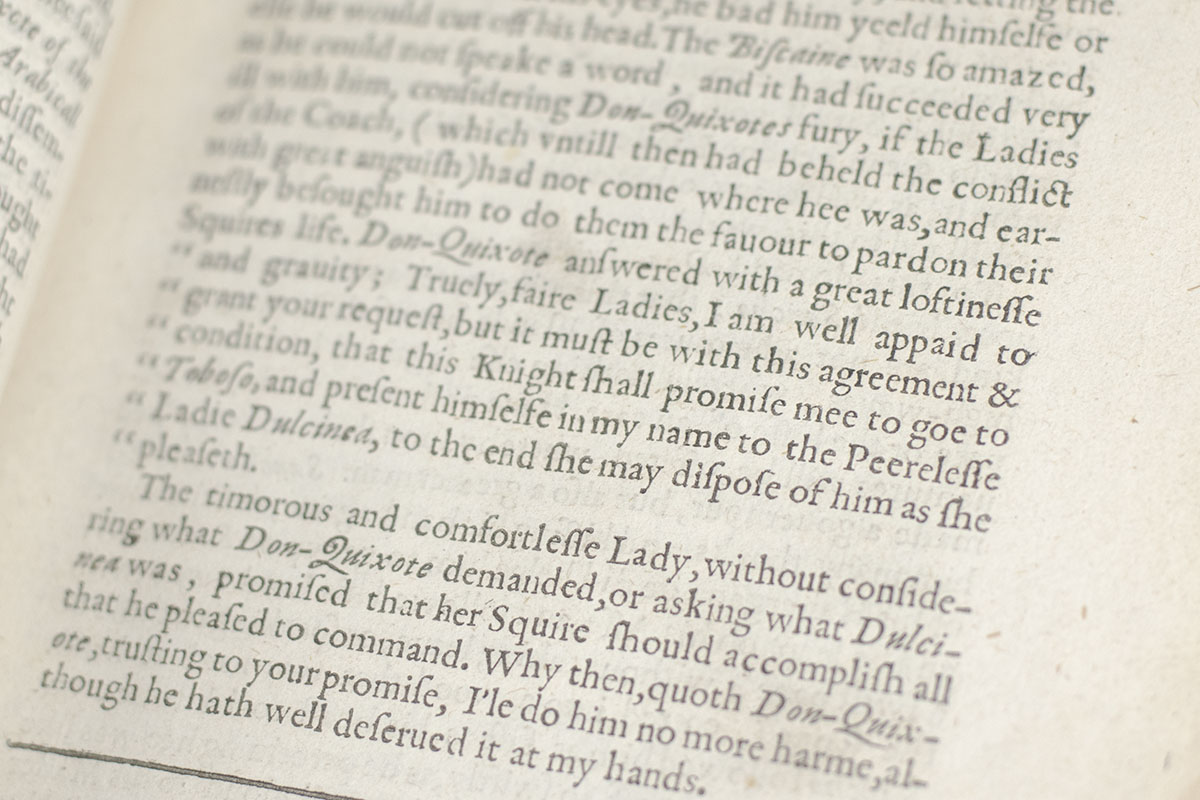 cere of the
Arabical
dissem-
the ti-
ought
had
ht
eyes, he bad him yeeld himſelfe or
elſe he would cut off his head. The Biſcaine was ſo amazed,
as he could not ſpeake a word, and it had ſucceeded very
ill with him, conſidering Don-Quixotes fury, if the Ladies
of the Coach, (which vntill then had beheld the conflict
with great anguiſh) had not come where hee was, and ear-
neſtly beſought him to do them the fauour to pardon their
Squires life. Don-Quixote anſwered with a great loftineſſe
“ and grauity; Truely, faire Ladies, I am well appaid to
“ grant your requeſt, but it muſt be with this agreement &
“ condition, that this Knight ſhall promiſe mee to goe to
“ Toboſo, and preſent himſelfe in my name to the Peereleſſe
“ Ladie Dulcinea, to the end ſhe may diſpoſe of him as ſhe
“ pleaſeth.
The timorous and comfortleſſe Lady, without conſide-
ring what Don-Quixote demanded, or asking what Dulci-
nea was, promiſed that her Squire ſhould accompliſh all
that he pleaſed to command. Why then, quoth Don-Quix-
ote, truſting to your promiſe, I'le do him no more harme, al-
though he hath well deſerued it at my hands.